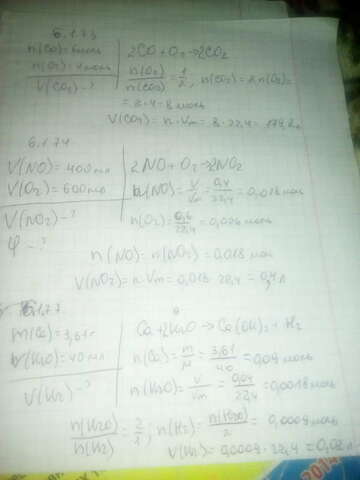 6.1.73
n(CO)=6моль
n(O₂)=4моль
V(CO₂)-?
2CO+O₂→2CO₂
n(O₂)/n(CO₂)=1/2, n(CO₂)=2n(O₂)=
=2·4=8 моль
V(CO₂)=n·Vm=8·22,4=179,2л
6.1.74
V(NO)=400мл
V(O₂)=600мл
V(NO₂)-?
φ-?
2NO+O₂→2NO₂
n(NO)=V/Vm=0,4/22,4=0,018моль
n(O₂)=0,6/22,4=0,026моль
n(NO)=n(NO₂)=0,018 моль
V(NO₂)=n·Vm=0,018·22,4=0,4 л
6.1.77
m(Ca)=3,61г
V(H₂O)=40мл
V(H₂)-?
Ca+2H₂O→Ca(OH)₂+H₂
n(Ca)=m/M=3,61/40=0,09моль
n(H₂O)=V/Vm=0,04/22,4=0,0018моль
n(H₂O)/n(H₂)=2/1; n(H₂)=n(H₂O)/2=0,0009моль
V(H₂)=0,0009·22,4=0,02л